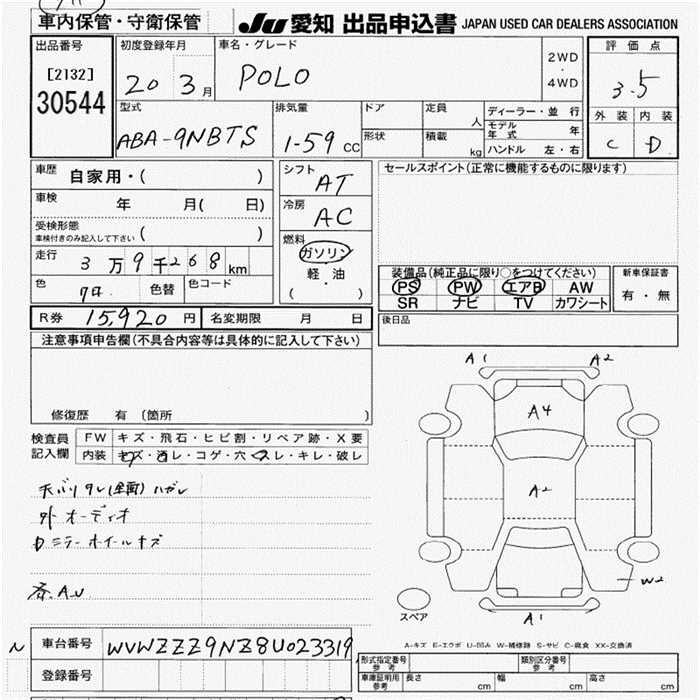 車内保管・守衛保管
JU 愛知 出品申込書 JAPAN USED CAR DEALERS ASSOCIATION
出品番号
[2132]
30544
初度登録年月
20 3月
車名・グレード
POLO
2WD
・
4WD
評価点
3.5
外装 内装
C D
型式
ABA-9NBTS
排気量
1-59 CC
ドア
形状
定員
人
積載
kg
ディーラー・並行
モデル年式 年
ハンドル 左・右
車歴
自家用・( )
車検
年 月( 日)
受検形態
車検付きのみ記入して下さい ( )
走行
3万9千268km
色
色替
色コード
シフト
AT
冷房
AC
燃料
ガソリン
・
軽・油
( )
セールスポイント(正常に機能するものに限ります)
装備品(純正品に限り○をつけてください)
PS PW エアB AW
SR ナビ TV カワシート
新車保証書
有・無
後日品
R券 15,920円
名変期限 月 日
注意事項申告欄(不具合内容等は具体的に記入して下さい)
修復歴 有 (箇所 )
検査員
記入欄
FW キズ・飛石・ヒビ割・リペア跡・X要
内装 キズ・ヨゴレ・コゲ・穴・スレ・キレ・破レ
天バリタレ(全面)ハガレ
外オーディオ
Dミラーホイールキズ
A1 A2
A4
A2
W2
A1
スペア
A-キズ E-エクボ U-凹み W-補修跡 S-サビ C-腐食 XX-交換済
車台番号
WVWZZZ9NZ8U023319
登録番号
形式指定番号
参考
類別区分番号
参考
車庫証明用
参考
長さ cm 幅 cm 高さ cm